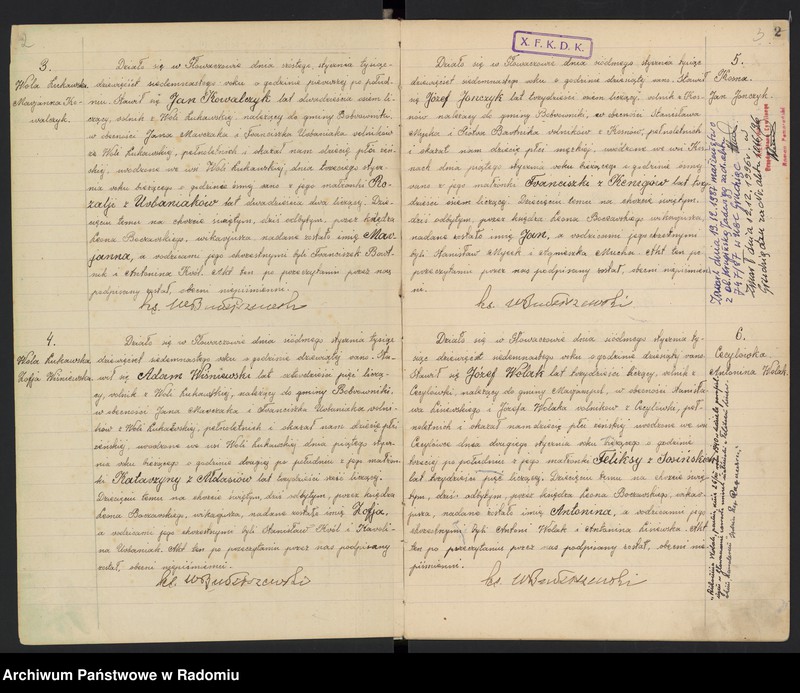 2
3.
Wola Łukawska
Marjanna Ko-
walczyk.
Działo się w Głowaczowie dnia szóstego stycznia tysiąc
dziewięćset siedemnastego roku o godzinie pierwszej po połud-
niu. Stawił się Jan Kowalczyk lat dwadzieścia osiem li-
czący, rolnik z Woli Łukawskiej, należącej do gminy Bobrowniki,
w obecności Jana Mroczka i Franciszka Urbaniaka rolników
ze Woli Łukawskiej, pełnoletnich i okazał nam dziecię płci żeń-
skiej, urodzone we wsi Woli Łukawskiej, dnia trzeciego stycz-
nia roku bieżącego o godzinie ósmej rano z jego małżonki Ro-
zalji z Urbaniaków lat dwadzieścia dwa liczącej. Dzie-
cięciu temu na chrzcie świętym, dziś odbytym, przez księdza
Leona Boczarskiego, wikarjusza, nadane zostało imię Mar-
janna, a rodzicami jego chrzestnymi byli Franciszek Bart-
nik i Antonina Król. Akt ten po przeczytaniu przez nas
podpisany został, obecni niepiśmienni.
ks. W Buderszewski
4.
Wola Łukawska
Zofja Wiśniewska
Działo się w Głowaczowie dnia siódmego stycznia tysiąc
dziewięćset siedemnastego roku o godzinie dziewiątej rano. Sta-
wił się Adam Wiśniewski lat czterdzieści pięć liczą-
cy, rolnik z Woli Łukawskiej, należącej do gminy Bobrowniki,
w obecności Jana Mroczka i Franciszka Urbaniaka rolni-
ków z Woli Łukawskiej, pełnoletnich i okazał nam dziecię płci
żeńskiej, urodzone we wsi Woli Łukawskiej dnia piątego stycz-
nia roku bieżącego o godzinie drugiej po południu z jego małżon-
ki Katarzyny z Adasiów lat trzydzieści sześć liczącej.
Dziecięciu temu na chrzcie świętym, dziś odbytym, przez księdza
Leona Boczarskiego, wikarjusza, nadane zostało imię Zofja,
a rodzicami jego chrzestnymi byli Stanisław Król i Karoli-
na Urbaniak. Akt ten po przeczytaniu przez nas podpisany
został, obecni niepiśmienni.
ks. W Buderszewski
X. F. K. D. K.
3
2
5.
Jan Jonczyk.
Działo się w Głowaczowie dnia siódmego stycznia tysiąc
dziewięćset siedemnastego roku o godzinie dziesiątej rano. Stawił
się Józef Jonczyk lat trzydzieści osiem liczący, rolnik z
należącej do gminy Bobrowniki, w obecności Stanisława
rolników z pełnoletnich
i okazał nam dziecię płci męskiej, urodzone we wsi
dnia piątego stycznia roku bieżącego o godzinie ósmej
rano z jego małżonki Franciszki z lat trzy-
dzieści osiem liczącej. Dziecięciu temu na chrzcie świętym,
dziś odbytym, przez księdza Leona Boczarskiego wikarjusza,
nadane zostało imię Jan, a rodzicami jego chrzestnymi
byli Stanisław i Agnieszka Mucha. Akt ten po
przeczytaniu przez nas podpisany został, obecni niepiśmien-
ni.
ks. W Buderszewski
Zawarł dnia 19.12.1987 małżeństwo
Zmarł dnia 12.12.1996 r. w
6.
Cecylówka
Antonina Wolak.
Działo się w Głowaczowie dnia siódmego stycznia ty-
siąc dziewięćset siedemnastego roku o godzinie dziesiątej rano.
Stawił się Józef Wolak lat trzydzieści liczący, rolnik z
Cecylówki, należącej do gminy Marjampol, w obecności Stanisła-
wa i Józefa Wolaka rolników z Cecylówki, peł-
noletnich i okazał nam dziecię płci żeńskiej urodzone we wsi
Cecylówce dnia drugiego stycznia roku bieżącego o godzinie
trzeciej po południu z jego małżonki Feliksy z Sosińskich
lat trzydzieści pięć liczącej. Dziecięciu temu na chrzcie świę-
tym, dziś odbytym, przez księdza Leona Boczarskiego, wikar-
jusza, nadane zostało imię Antonina, a rodzicami jego
chrzestnymi byli Antoni Wolak i Antonina. Akt
ten po przeczytaniu przez nas podpisany został, obecni nie-
piśmienni.
ks. W Buderszewski
Archiwum Państwowe w Radomiu